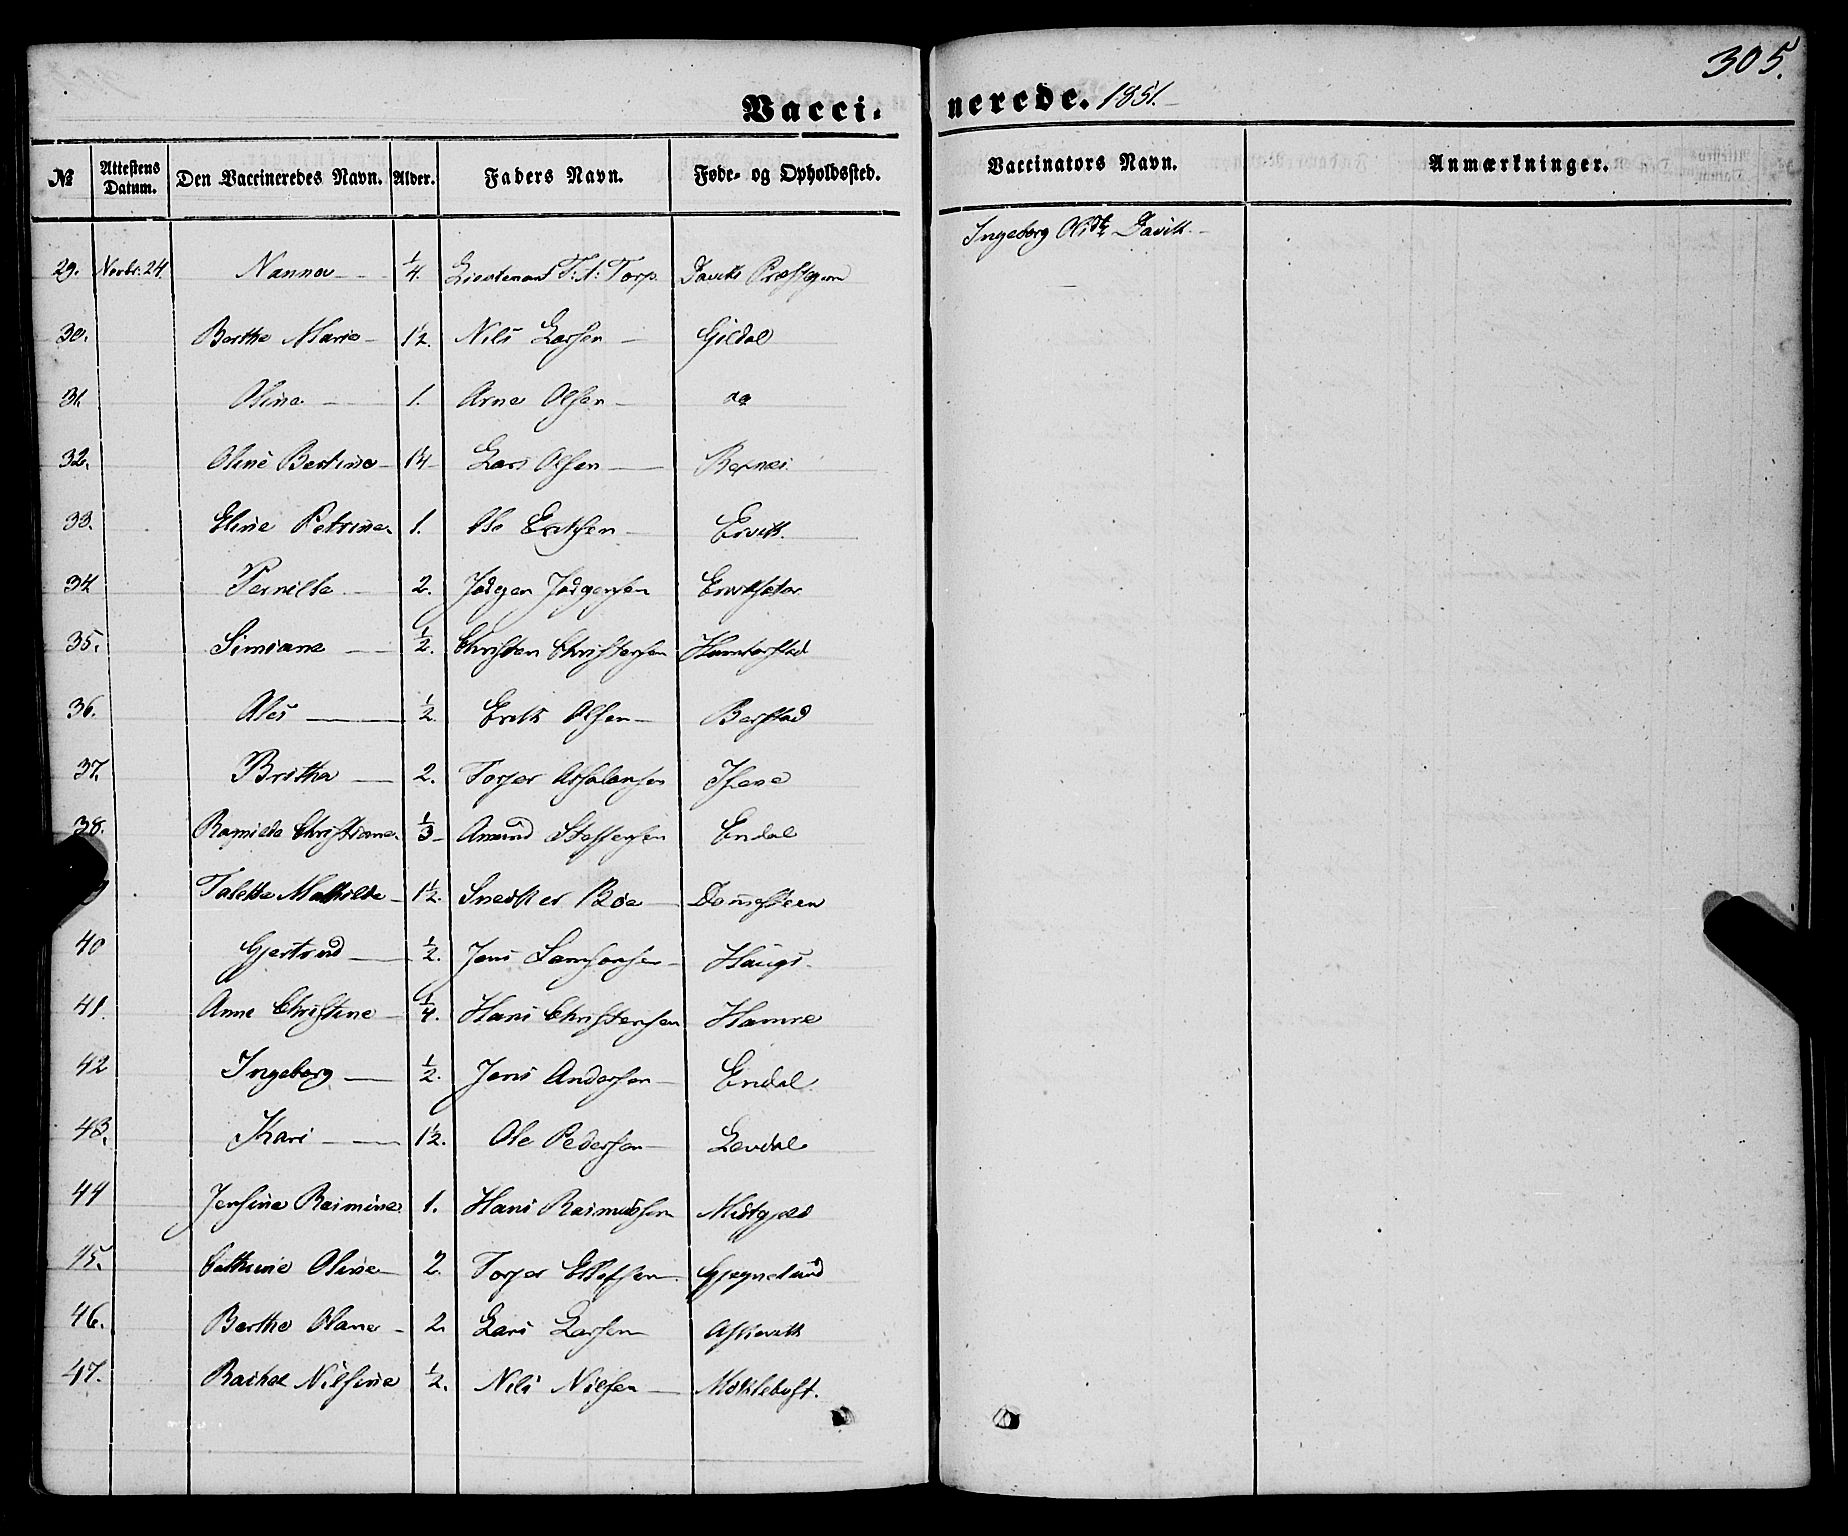 305.
Vaccinerede. 1851.
№ Attestens Datum. Den Vaccineredes Navn. Alder. Faders Navn. Føde- og Opholdssted. Vaccinators Navn. Anmærkninger.
Ingeborg Davik
29. Novbr. 24 Nanna 1/4. Lieutenant Torp.
30. Berthe Marie 1½. Nils Larsen Gildal
31. Oline 1. Arne Olsen do
32. Oline Bertine 1¼ Lars Olsen
33. Eline Petrine 1. Ole Eriksen Ervik.
34 Pernille 2. Jørgen Jørgensen
35. Simiane ½. Christen Christensen
36. Ales ½. Erik Olsen Berstad
37. Britha 2. Torger Absalonsen Isene
38. Ragnilde Christiane 1/3 Amund Steffensen Endal
Talette Mathilde 1½. Snedker Bøe Dommesteen
40 Gjertrud ½. Jens Samsonsen Haugs
41. Anne Christine 1/4. Hans Christensen Hamre
42 Ingeborg ½. Jens Andersen Endal.
43. Kari 1½. Ole Pedersen Levdal
44 Jensine Rasmine 1. Hans Rasmussen Midtgjæl
45. Cathrine Oline 2. Torger Ellefsen Gjegnelund
46. Berthe Olane 2. Lars Larsen Askevik
47. Rachel Nilsine ½. Nils Nilsen Myklebust.